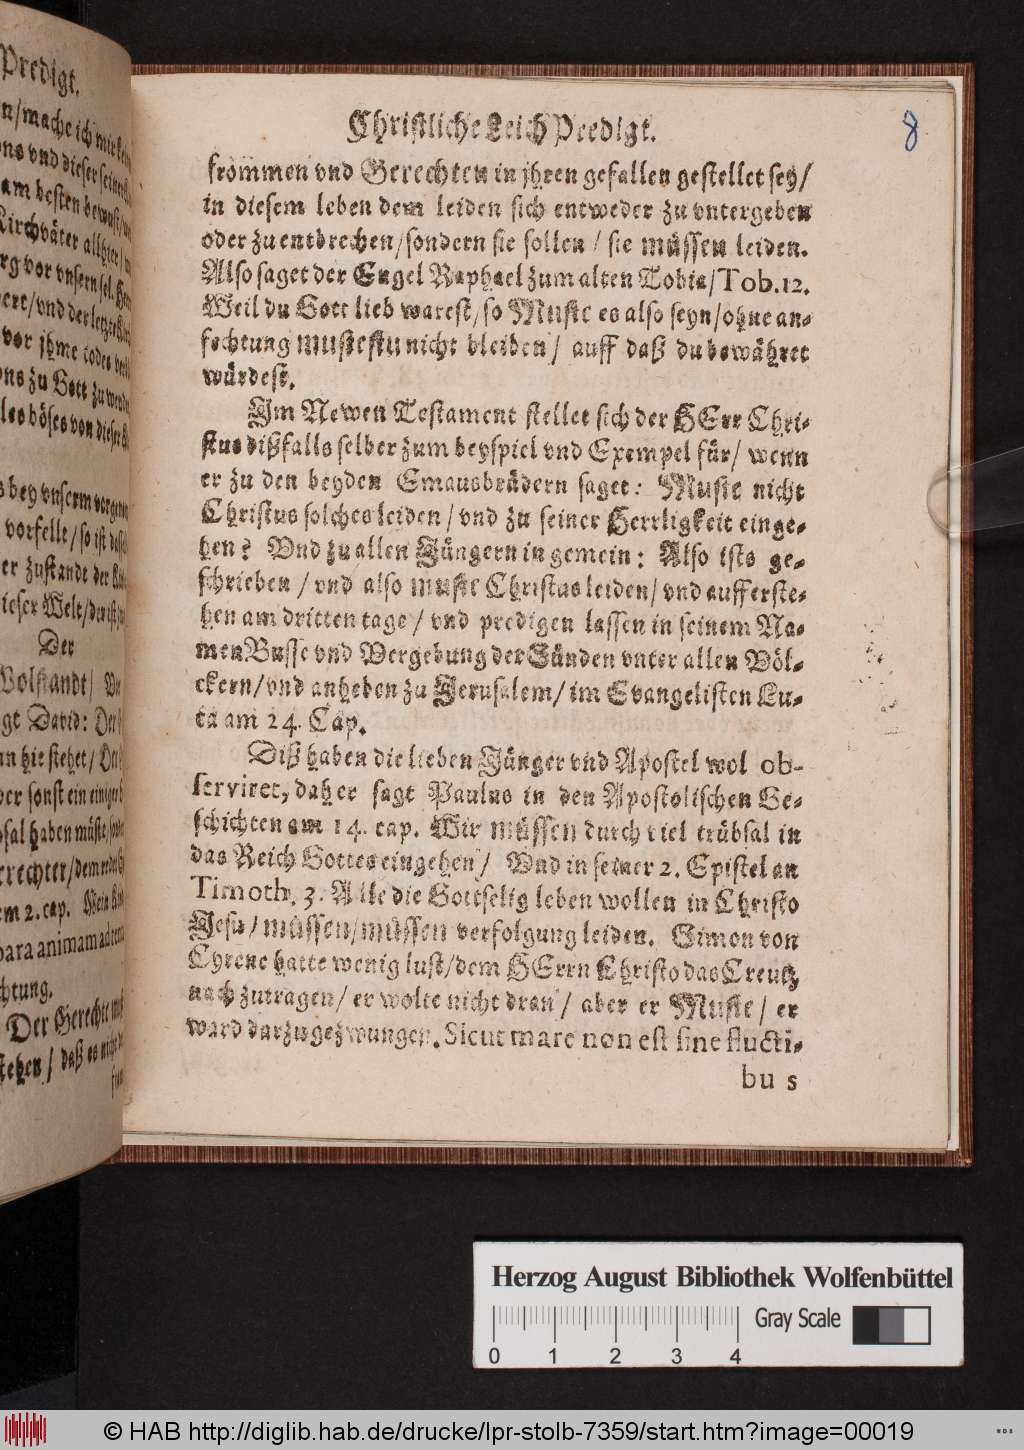 Predigt.
Der
Volstandt/
gt David:
nn hie stehet/
em 2. cap.
chtung.
Der Gerechte
Christliche Leich Predigt.
8
frommen vnd Gerechten in jhren gefallen gestellet sey/
in diesem leben dem leiden sich entweder zu vntergeben
oder zu entbrechen/sondern sie sollen / sie müssen leiden.
Also saget der Engel Raphael zum alten Tobia/Tob.12.
Weil du Gott lieb warest/so Muste es also seyn/ohne an-
fechtung mustestu nicht bleiben/ auff daß du bewähret
würdest.
Jm Newen Testament stellet sich der HErr Chri-
stus dißfalls selber zum beyspiel vnd Exempel für/ wenn
er zu den beyden Emausbrüdern saget: Muste nicht
Christus solches leiden/vnd zu seiner Herrligkeit einge-
hen? Vnd zu allen Jüngern in gemein: Also ists ge-
schrieben / vnd also muste Christus leiden/ vnd aufferste-
hen am dritten tage/ vnd predigen lassen in seinem Na-
men Busse vnd Vergebung der Sünden vnter allen Völ-
ckern/vnd anheben zu Jerusalem/im Evangelisten Lu-
ca am 24. Cap.
Diß haben die lieben Jünger vnd Apostel wol ob-
serviret, daher sagt Paulus in den Apostolischen Ge-
schichten am 14. cap. Wir müssen durch viel trübsal in
das Reich Gottes eingehen/ Vnd in seiner 2. Epistel an
Timoth. 3. Alle die Gottselig leben wollen in Christo
Jesu/ müssen/müssen verfolgung leiden. Simon von
Cyrene hatte wenig lust/dem HErrn Christo das Creutz
nach zutragen/ er wolte nicht dran/ aber er Muste/ er
ward darzu gezwungen. Sicut mare non est sine flucti-
bus
Herzog August Bibliothek Wolfenbüttel
Gray Scale
0 1 2 3 4
© HAB http://diglib.hab.de/drucke/lpr-stolb-7359/start.htm?image=00019